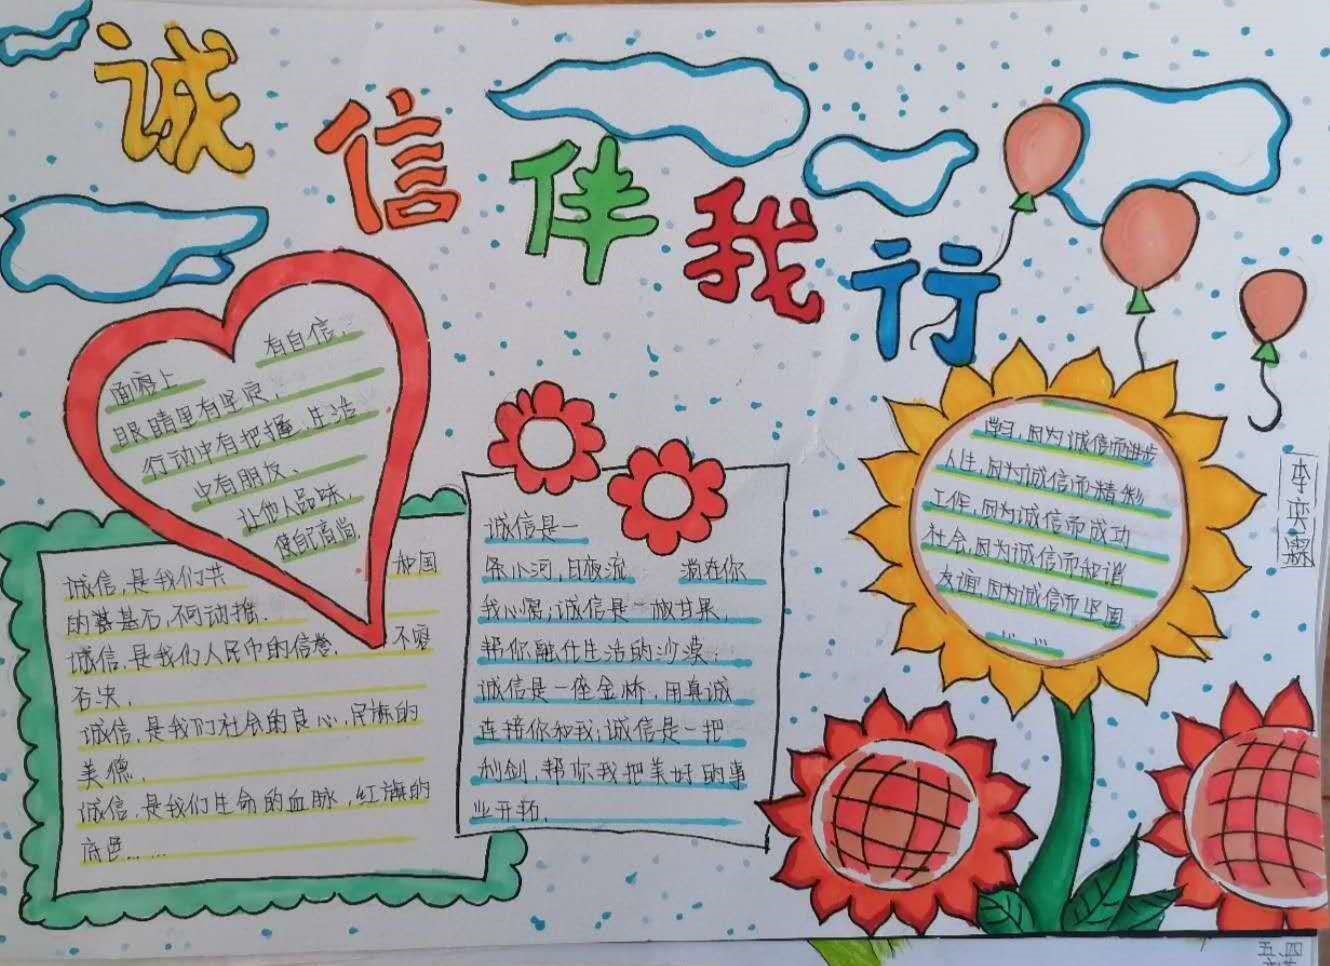 诚信伴我行
有自信，
面容上
眼睛里有坚定，
行动中有把握，生活
中有朋友、
让他人品味，
使自己高尚。
诚信，是我们共和国
的基石，不可动摇．
诚信，是我们人民币的信誉．不容
否决．
诚信，是我们社会的良心，民族的
美德．
诚信，是我们生命的血脉，红旗的
底色……
诚信是一
条小河，日夜流淌在你
我心窝；诚信是一枚甘果，
帮你融化生活的沙漠；
诚信是一座金桥，用真诚
连接你和我；诚信是一把
利剑，帮你我把美好的事
业开拓．
学习，因为诚信而进步
人生，因为诚信而精彩
工作，因为诚信而成功
社会，因为诚信而和谐
友谊，因为诚信而坚固
……
五．四